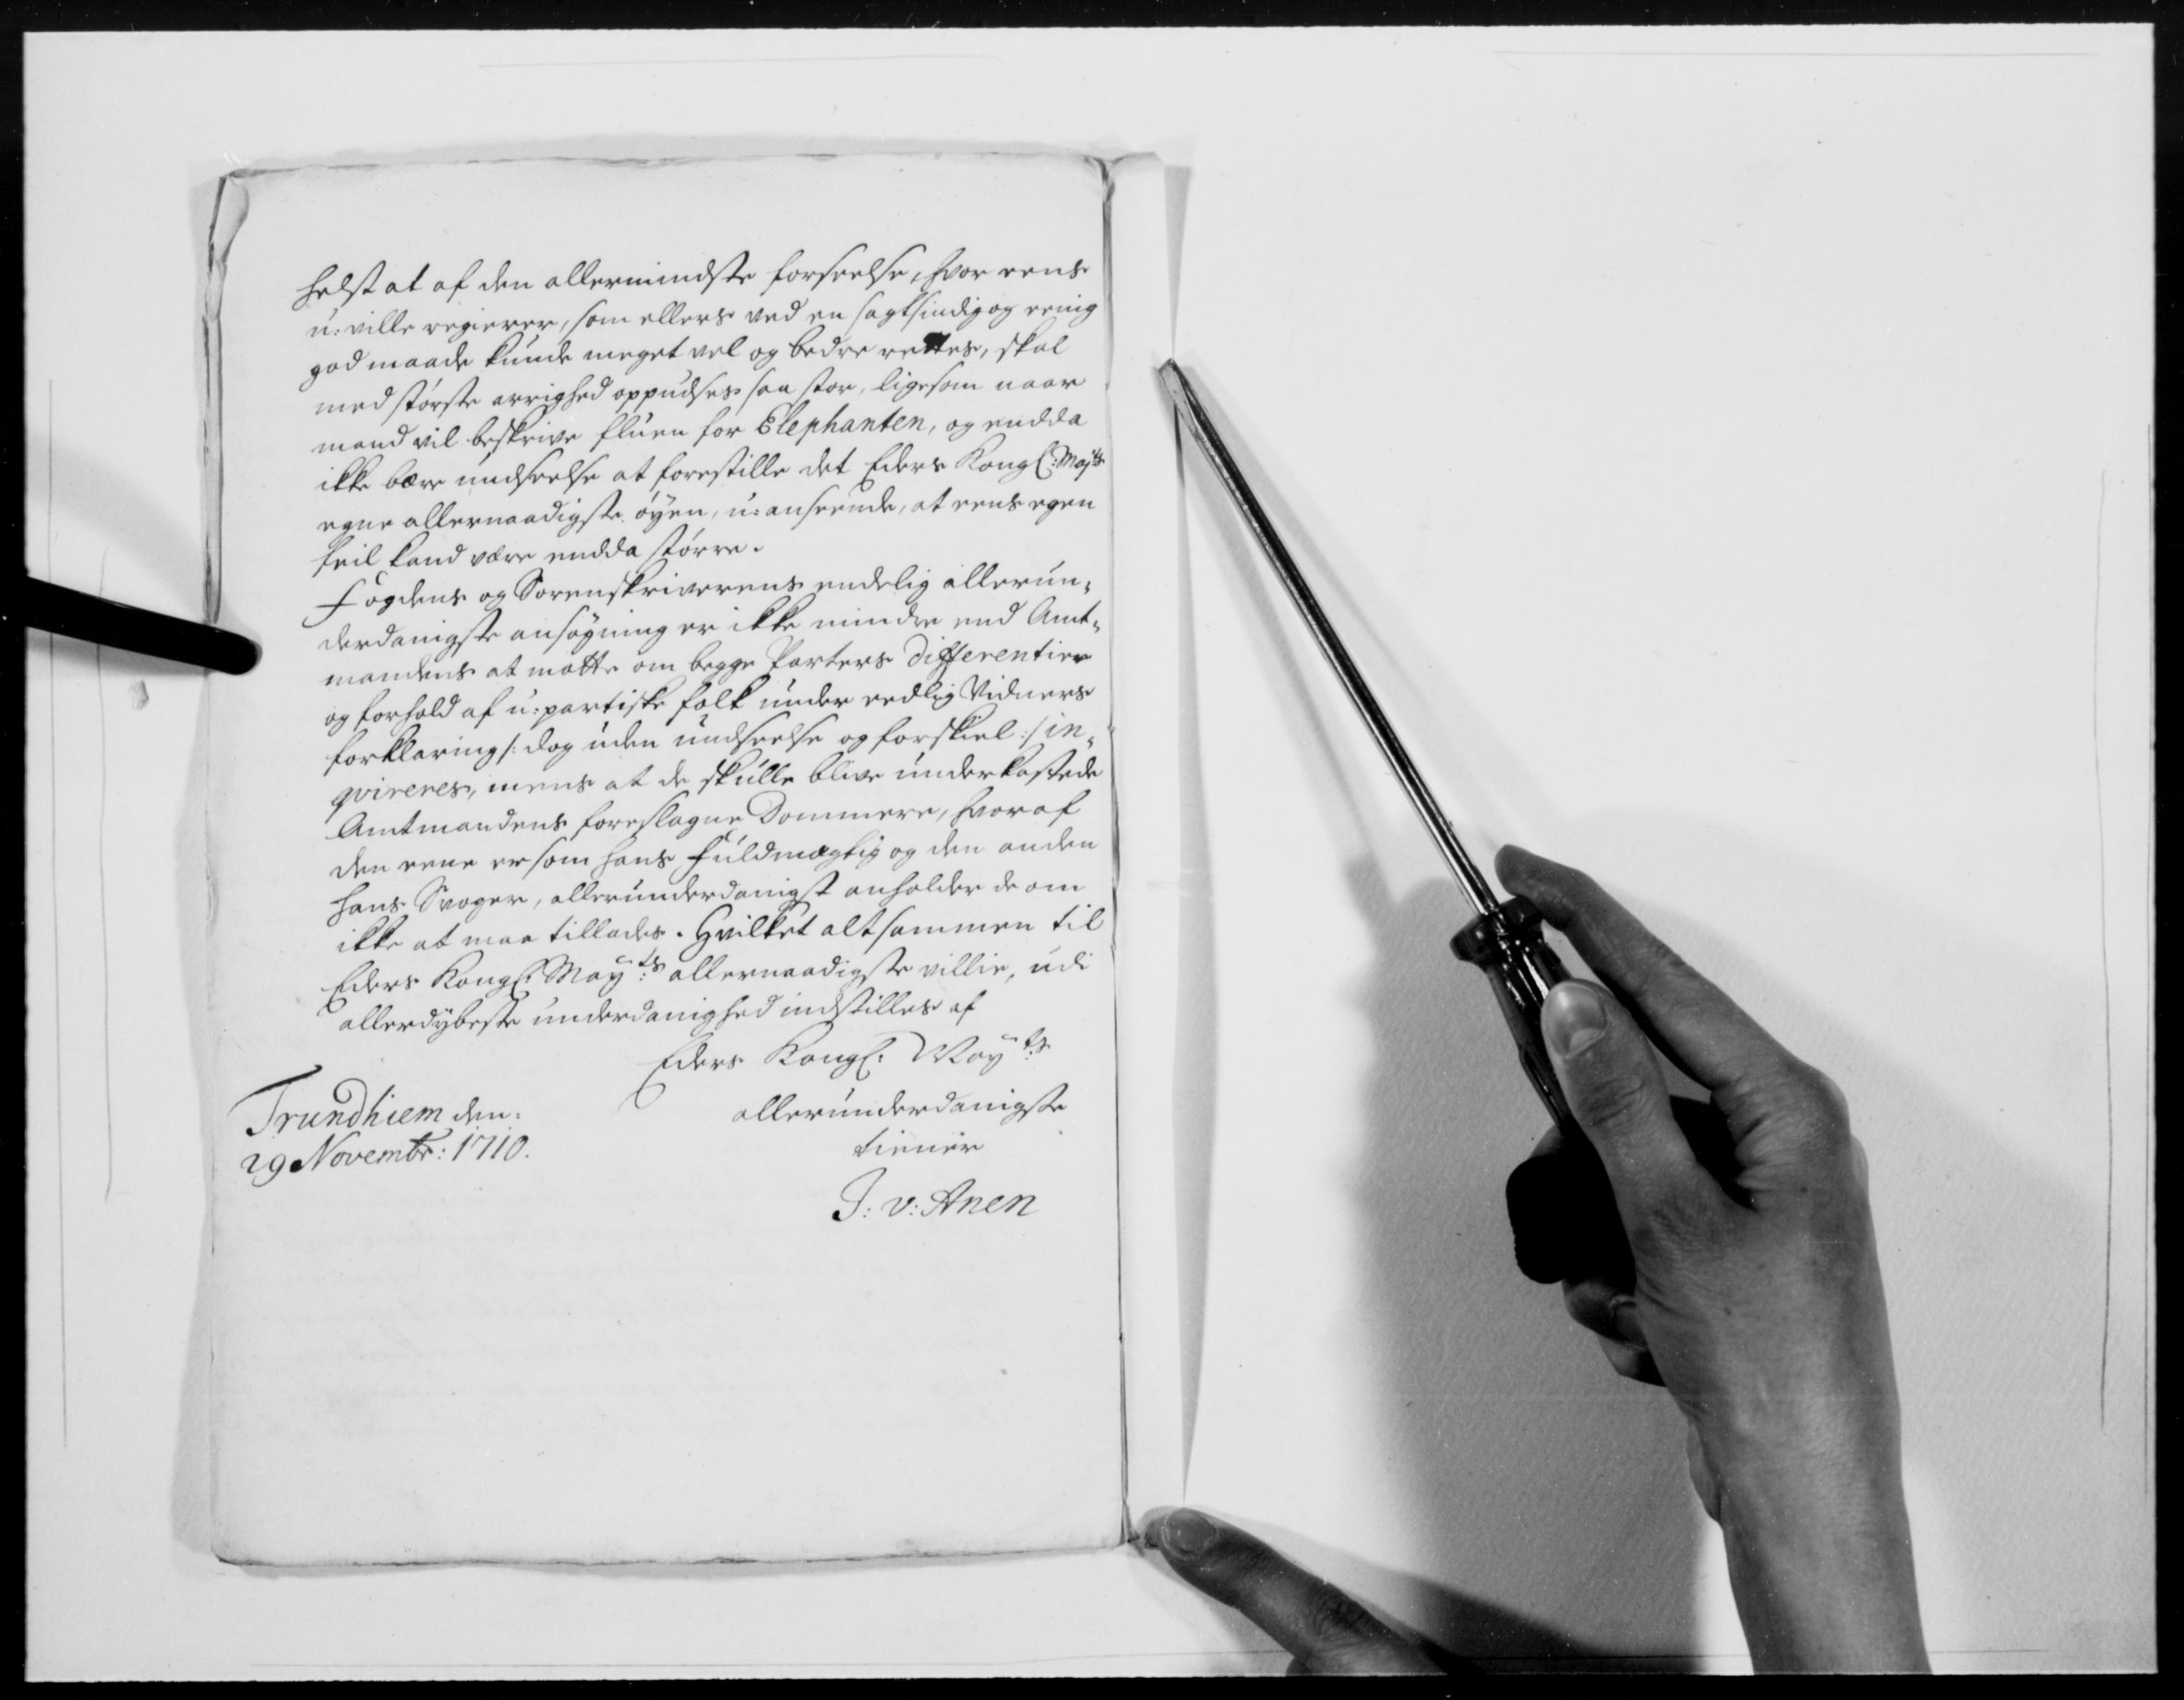 helst at af den allermindste forseelse, hvor eens
u: ville regierer, som ellers ved en sagtsindig og eenig
god maade kunde meget vel og bedre rettes, skal
med største arrighed oppudses saa stor, ligesom naar
mand vil beskrive fluen for Elephanten, og endda
ikke bære undseelse at forestille det Eders Kongl: Majts
egne allernaadigste øyen, u: anseende, at eens egen
feil kand være endda større.
Fogdens og Sorenskriverens endelig allerun,,
derdanigste ansøgning er ikke mindre end Amt,,
mandens at motte om begge Parters Differentier
og forhold af u: partiske folk under eedlig Vidners
forklaring /: dog uden undseelse og forskiel :/ in,,
qvireres, mens at de skulle blive underkastede
Amtmandens foreslagne Dommere, hvoraf
den eene er som hans Fuldmægtig og den anden
hans Svoger, allerunderdanigst anholder de om
ikke at maa tillades. Hvilket altsammen til
Eders Kongl: Mayts: allernaadigste villie, udi
allerdybeste underdanighed indstilles af
Eders Kongl: Mayts:
allerunderdanigste
tiener
J: v: Anen
Trundhiem den:
29 Novembr: 1710.